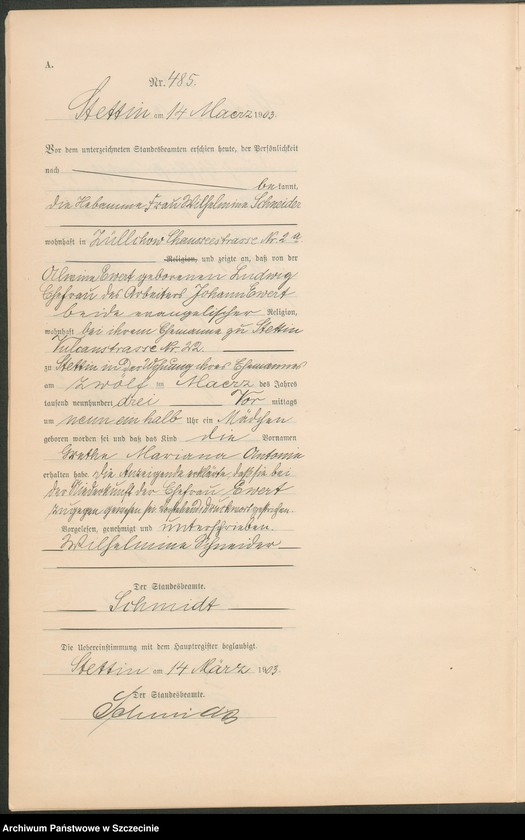 A.
Nr. 485.
Stettin am 14 Maerz 1903.
Vor dem unterzeichneten Standesbeamten erschien heute, der Persönlichkeit
nach
bekannt,
die Hebamme Frau Wilhelmine Schneider
wohnhaft in Züllchow Chausseestrasse Nr. 2 a
Religion, und zeigte an, daß von der
Ewert geborenen Ludwig
Ehefrau des Arbeiters Johann Ewert
beide evangelischer Religion,
wohnhaft bei ihrem Ehemanne zu Stettin
Vulcanstrasse Nr. 22.
zu Stettin in der Wohnung ihres Ehemannes
am zwölf ten Maerz des Jahres
tausend neunhundert drei Vor mittags
um neun ein halb Uhr ein Mädchen
geboren worden sei und daß das Kind die Vornamen
Grethe Mariana Antonie
erhalten habe. Die Anzeigende erklärte, daß sie bei
der Niederkunft der Ehefrau Ewert
zugegen gewesen sei. Druckwort gestrichen.
Vorgelesen, genehmigt und unterschrieben.
Wilhelmine Schneider
Der Standesbeamte.
Schmidt
Die Uebereinstimmung mit dem Hauptregister beglaubigt.
Stettin am 14 März 1903.
Der Standesbeamte.
Schmidt
Archiwum Państwowe w Szczecinie